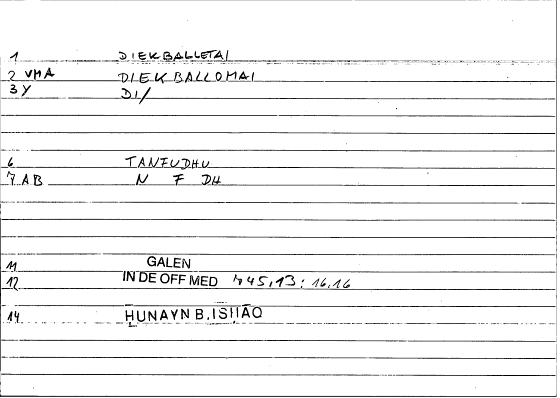 1 DIEKBALLETAI
2 VMA DIEKBALLOMAI
3 Y DI/
6 TANFUDHU
7 AB N F DH
11 GALEN
12 IN DE OFF MED 45,13 : 16.16
14 ḤUNAYN B. ISḤĀQ